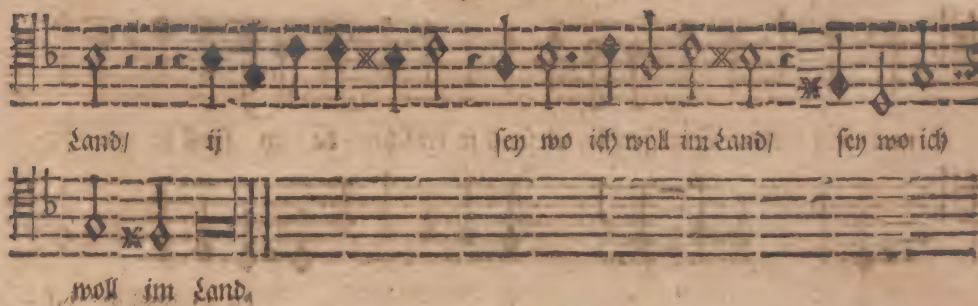 Land/ ij sey wo ich woll im Land/ sey wo ich
woll im Land.